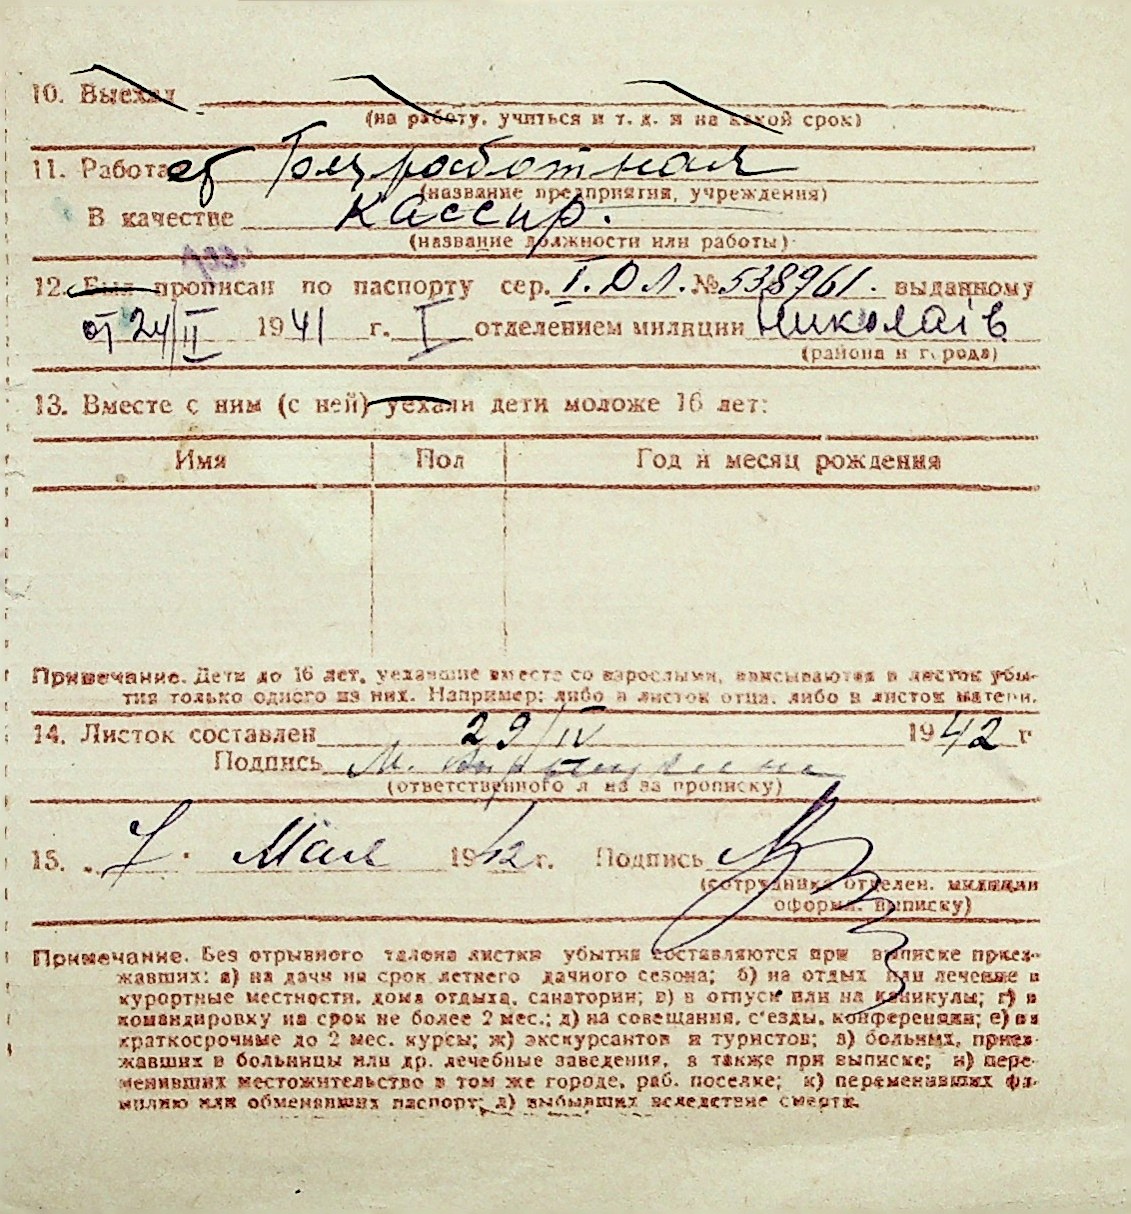 10. Выехал
(на работу, учиться и т. д. и на какой срок)
11. Работает Безработная
(название предприятия, учреждения)
В качестве кассир.
(название должности или работы)
12. Был прописан по паспорту сер. I. ДЛ. № 538961. выданному
от 24/II 1941 г. I отделением милиции Николаів
(района и города)
13. Вместе с ним (с ней) уехали дети моложе 16 лет:
Имя Пол Год и месяц рождения
Примечание. Дети до 16 лет, уехавшие вместе со взрослыми, вписываются в листок убы-
тия только одного из них. Например: либо в листок отца, либо в листок матери.
14. Листок составлен 29/IV 1942 г
Подпись М.
(ответственного л на за прописку)
15. „ 7. Мая 1942 г. Подпись
(сотрудника отделен. милиции
оформ. выписку)
Примечание. Без отрывного талона листки убытия составляются при выписке приез-
жавших: а) на дачи на срок летнего дачного сезона; б) на отдых или лечение в
курортные местности, дома отдыха, санатории; в) в отпуск или на каникулы; г) в
командировку на срок не более 2 мес.; д) на совещания, с'езды, конференции; е) на
краткосрочные до 2 мес. курсы; ж) экскурсантов и туристов; з) больных, приез-
жавших в больницы или др. лечебные заведения, а также при выписке; и) пере-
менивших местожительство в том же городе, раб. поселке; к) переменивших фа-
милию или обменявших паспорт; л) выбывших вследствие смерти.